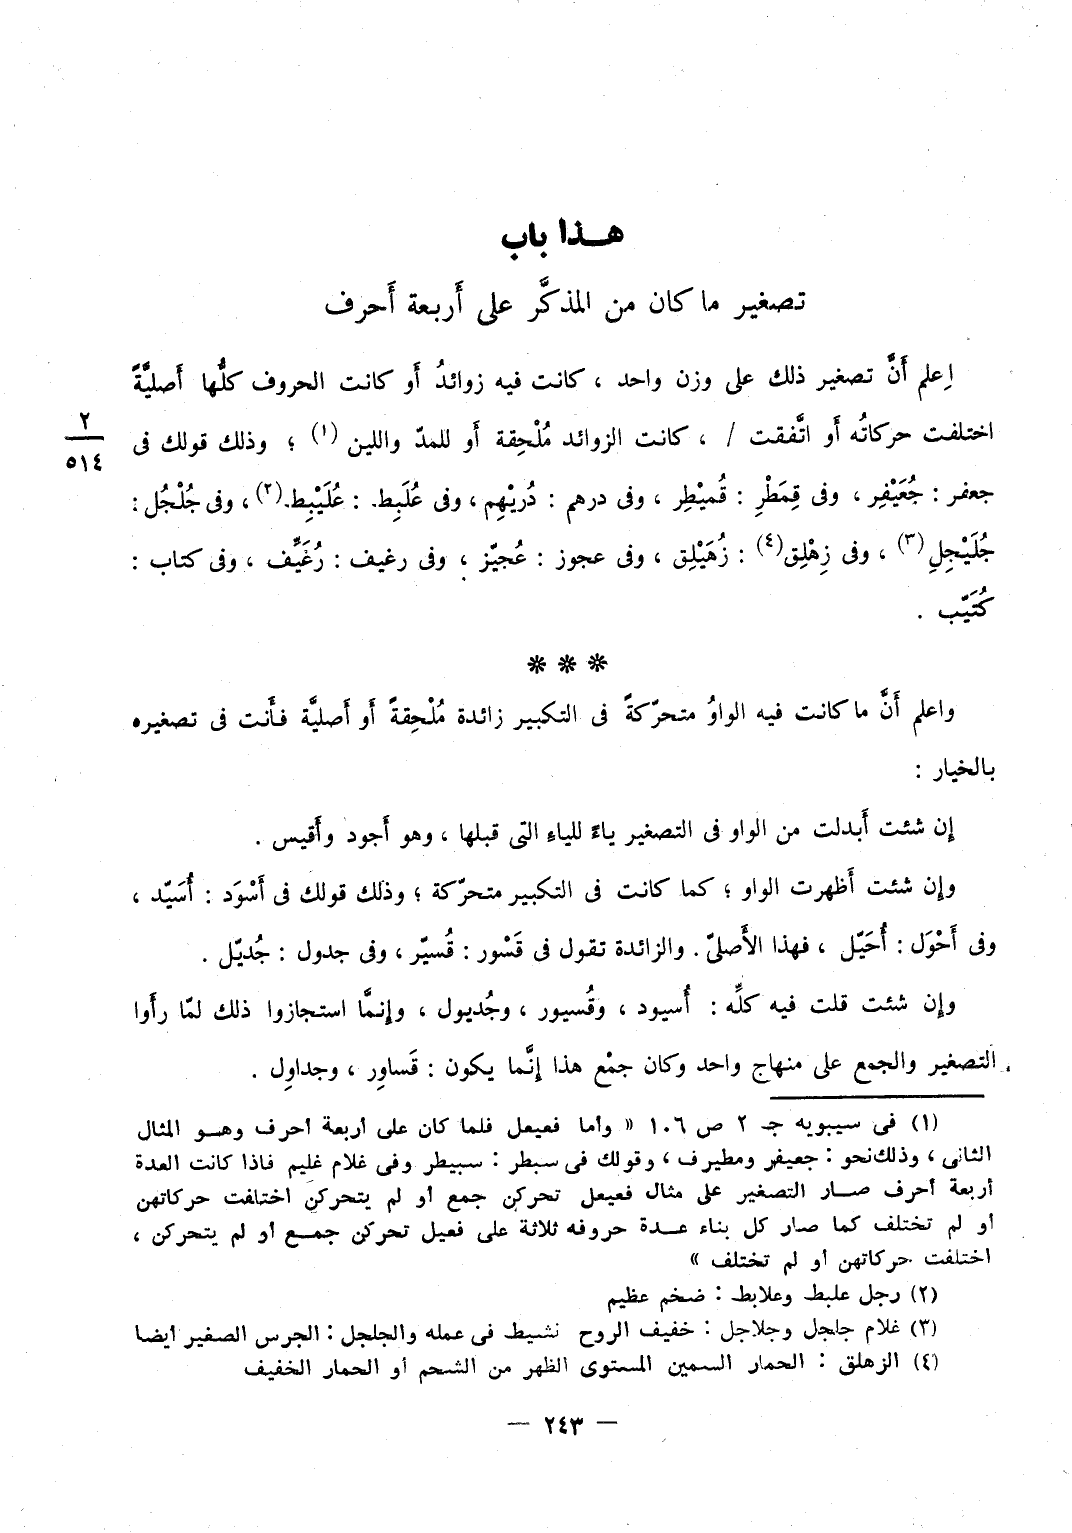 هـذا باب
تصغير ما كان من المذكَّر على أَربعة أَحرف
اِعلم أَنَّ تصغير ذلك على وزن واحد ، كانت فيه زوائدُ أَو كانت الحروف كلُّها أَصليَّةً
اختلفت حركاتُه أَو اتَّفقت / ، كانت الزوائد مُلْحِقة أَو للمدّ واللين (١) ؛ وذلك قولك فى
٢
٥١٤
جعفر : جُعَيْفِر ، وفى قِمَطْرِ : قُميْطِر ، وفى درهم : دُريْهِم ، وفى عُلَبِط : عُلَيْبِط(٢) ، وفى جُلْجُل :
جُلَيْجِلِ (٣) ، وفى زِهْلِق(٤) : زُهَيْلِق ، وفى عجوز : عُجيّز ، وفى رغيف : رُغَيِّف ، وفى كتاب :
كُتَيِّب .
❊ ❊ ❊
واعلم أَنَّ ما كانت فيه الواوُ متحرّكةً فى التكبير زائدة مُلْحِقةً أَو أَصليَّة فأَنت فى تصغيره
بالخيار :
إن شئت أَبدلت من الواو فى التصغير ياءً للياءِ التى قبلها ، وهو أَجود وأَقيس .
وإن شئت أَظهرت الواو ؛ كما كانت فى التكبير متحرّكة ؛ وذلك قولك فى أَسْوَد : أُسَيّد ،
وفى أَحْوَل : أُحَيّل ، فهذا الأَصلىّ . والزائدة تقول فى قَسْور : قُسيّر ، وفى جدول : جُديّل .
وإن شئت قلت فيه كلِّه : أُسيود ، وقُسيور ، وجُديول ، وإنمَّا استجازوا ذلك لمّا رأَوا
التصغير والجمع على منهاج واحد وكان جمْع هذا إنَّما يكون : قَساوِر ، وجداوِل .
(١) فى سيبويه جـ ٢ ص ١٠٦ « وأما فعيعل فلما كان على أربعة أحرف وهـو المثال
الثانى ، وذلك نحو : جعيفر ومطيرف ، وقولك فى سبطر : سبيطر وفى غلام غليم فاذا كانت العدة
أربعة أحرف صـار التصغير على مثال فعيعل تحركن جمع أو لم يتحركن اختلفت حركاتهن
أو لم تختلف كما صار كل بناء عـدة حروفه ثلاثة على فعيل تحركن جمـع أو لم يتحركن ،
اختلفت حركاتهن أو لم تختلف »
(٢) رجل علبط وعلابط : ضخم عظيم
(٣) غلام جلجل وجلاجل : خفيف الروح نشيط فى عمله والجلجل : الجرس الصغير أيضا
(٤) الزهلق : الحمار السمين المستوى الظهر من الشحم أو الحمار الخفيف
— ٢٤٣ —